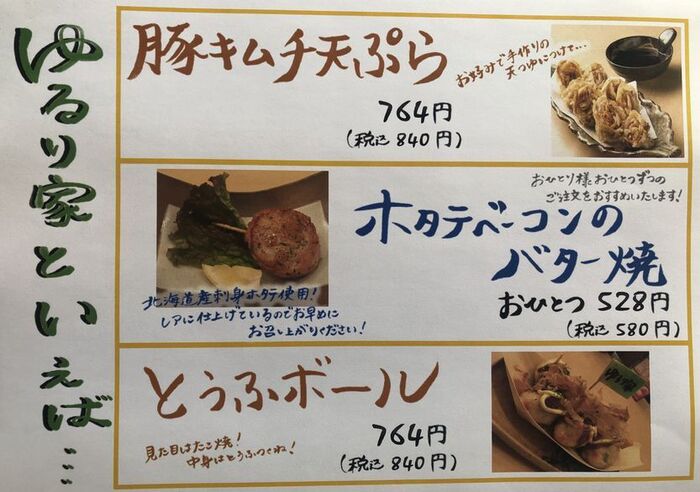 ゆるり家といえば…
豚キムチ天ぷら
お好みで手作りの
天つゆにつけて…
764円
(税込 840円)
おひとり様おひとつずつの
ご注文をおすすめいたします!
ホタテベーコンの
バター焼
北海道産刺身ホタテ使用!
レアに仕上げているのでお早めに
お召し上がりください!
おひとつ 528円
(税込 580円)
とうふボール
見た目はたこ焼!
中身はとうふつくね!
764円
(税込 840円)